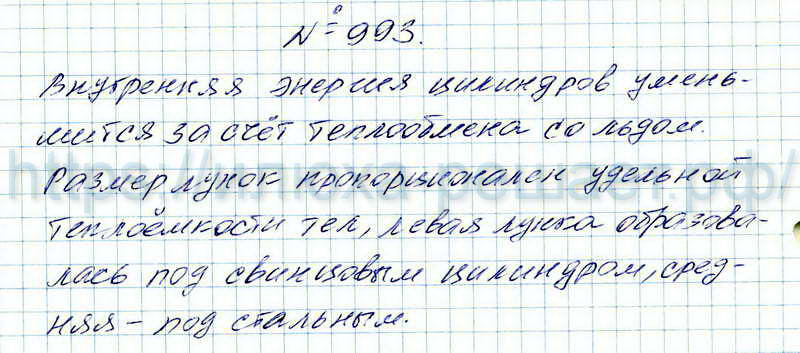 № 993.
Внутренняя энергия цилиндров умень-
шится за счёт теплообмена со льдом.
Размер лунок пропорционален удельной
теплоёмкости тел, левая лунка образова-
лась под свинцовым цилиндром, сред-
няя – под стальным.